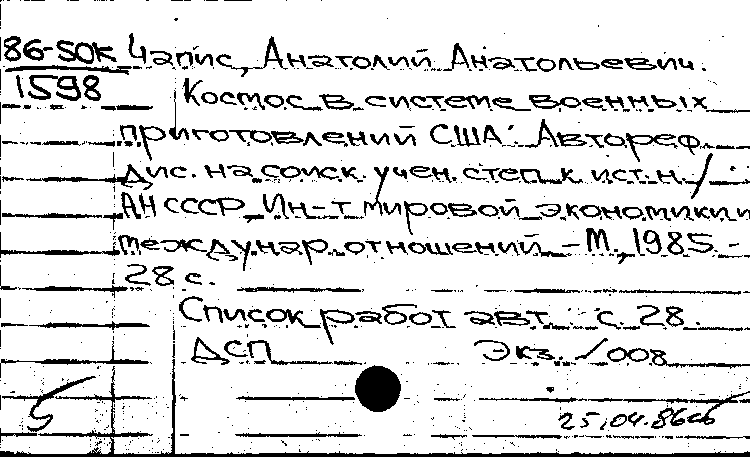 86-SOK Чапис, Анатолий Анатольевич.
1598
Космос в системе военных
приготовлений США: Автореф.
дис. на соиск. учен. степ. к. ист. н. /
АН СССР, Ин-т мировой экономики и
междунар. отношений. – М., 1985. –
28 с.
Список работ авт.: с. 28.
ДСП Экз. /008
5
25.04.86